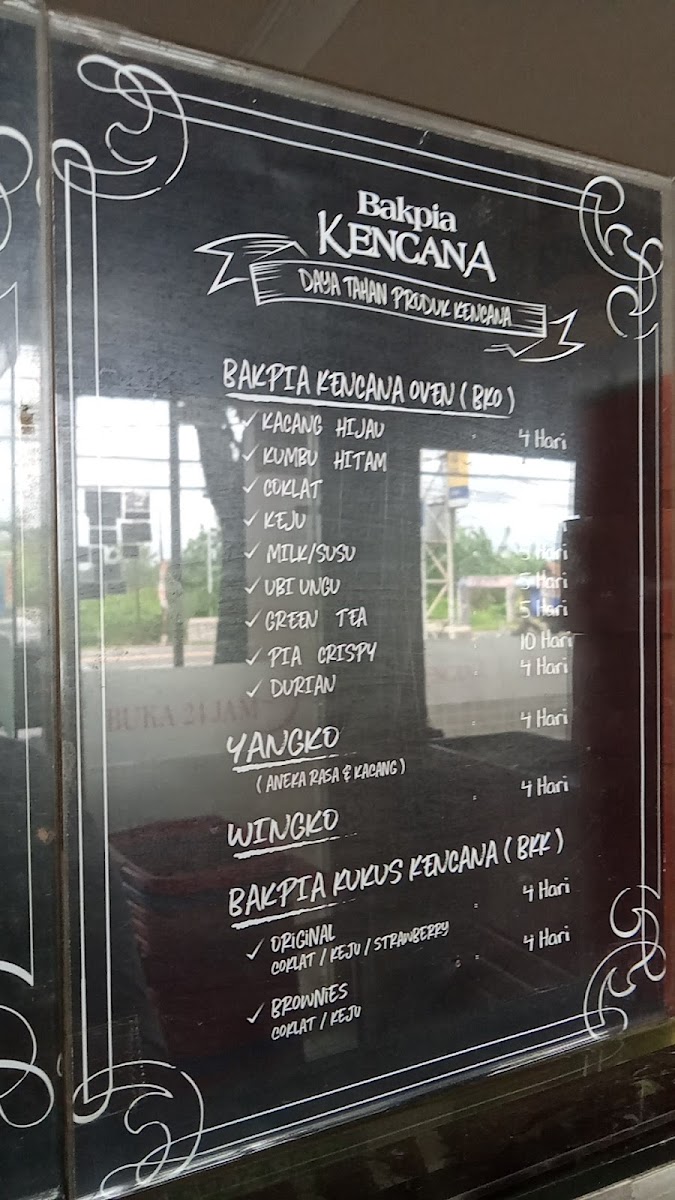 Bakpia
KENCANA
DAYA TAHAN PRODUK KENCANA
BAKPIA KENCANA OVEN ( BKO )
✓ KACANG HIJAU : 4 Hari
✓ KUMBU HITAM
✓ COKLAT
✓ KEJU
✓ MILK/SUSU 5 Hari
✓ UBI UNGU 5 Hari
✓ GREEN TEA 5 Hari
✓ PIA CRISPY : 10 Hari
✓ DURIAN : 4 Hari
YANGKO : 4 Hari
( ANEKA RASA & KACANG )
WINGKO : 4 Hari
BAKPIA KUKUS KENCANA ( BKK )
✓ ORIGINAL : 4 Hari
COKLAT / KEJU / STRAWBERRY
✓ BROWNIES : 4 Hari
COKLAT / KEJU
BUKA 24 JAM